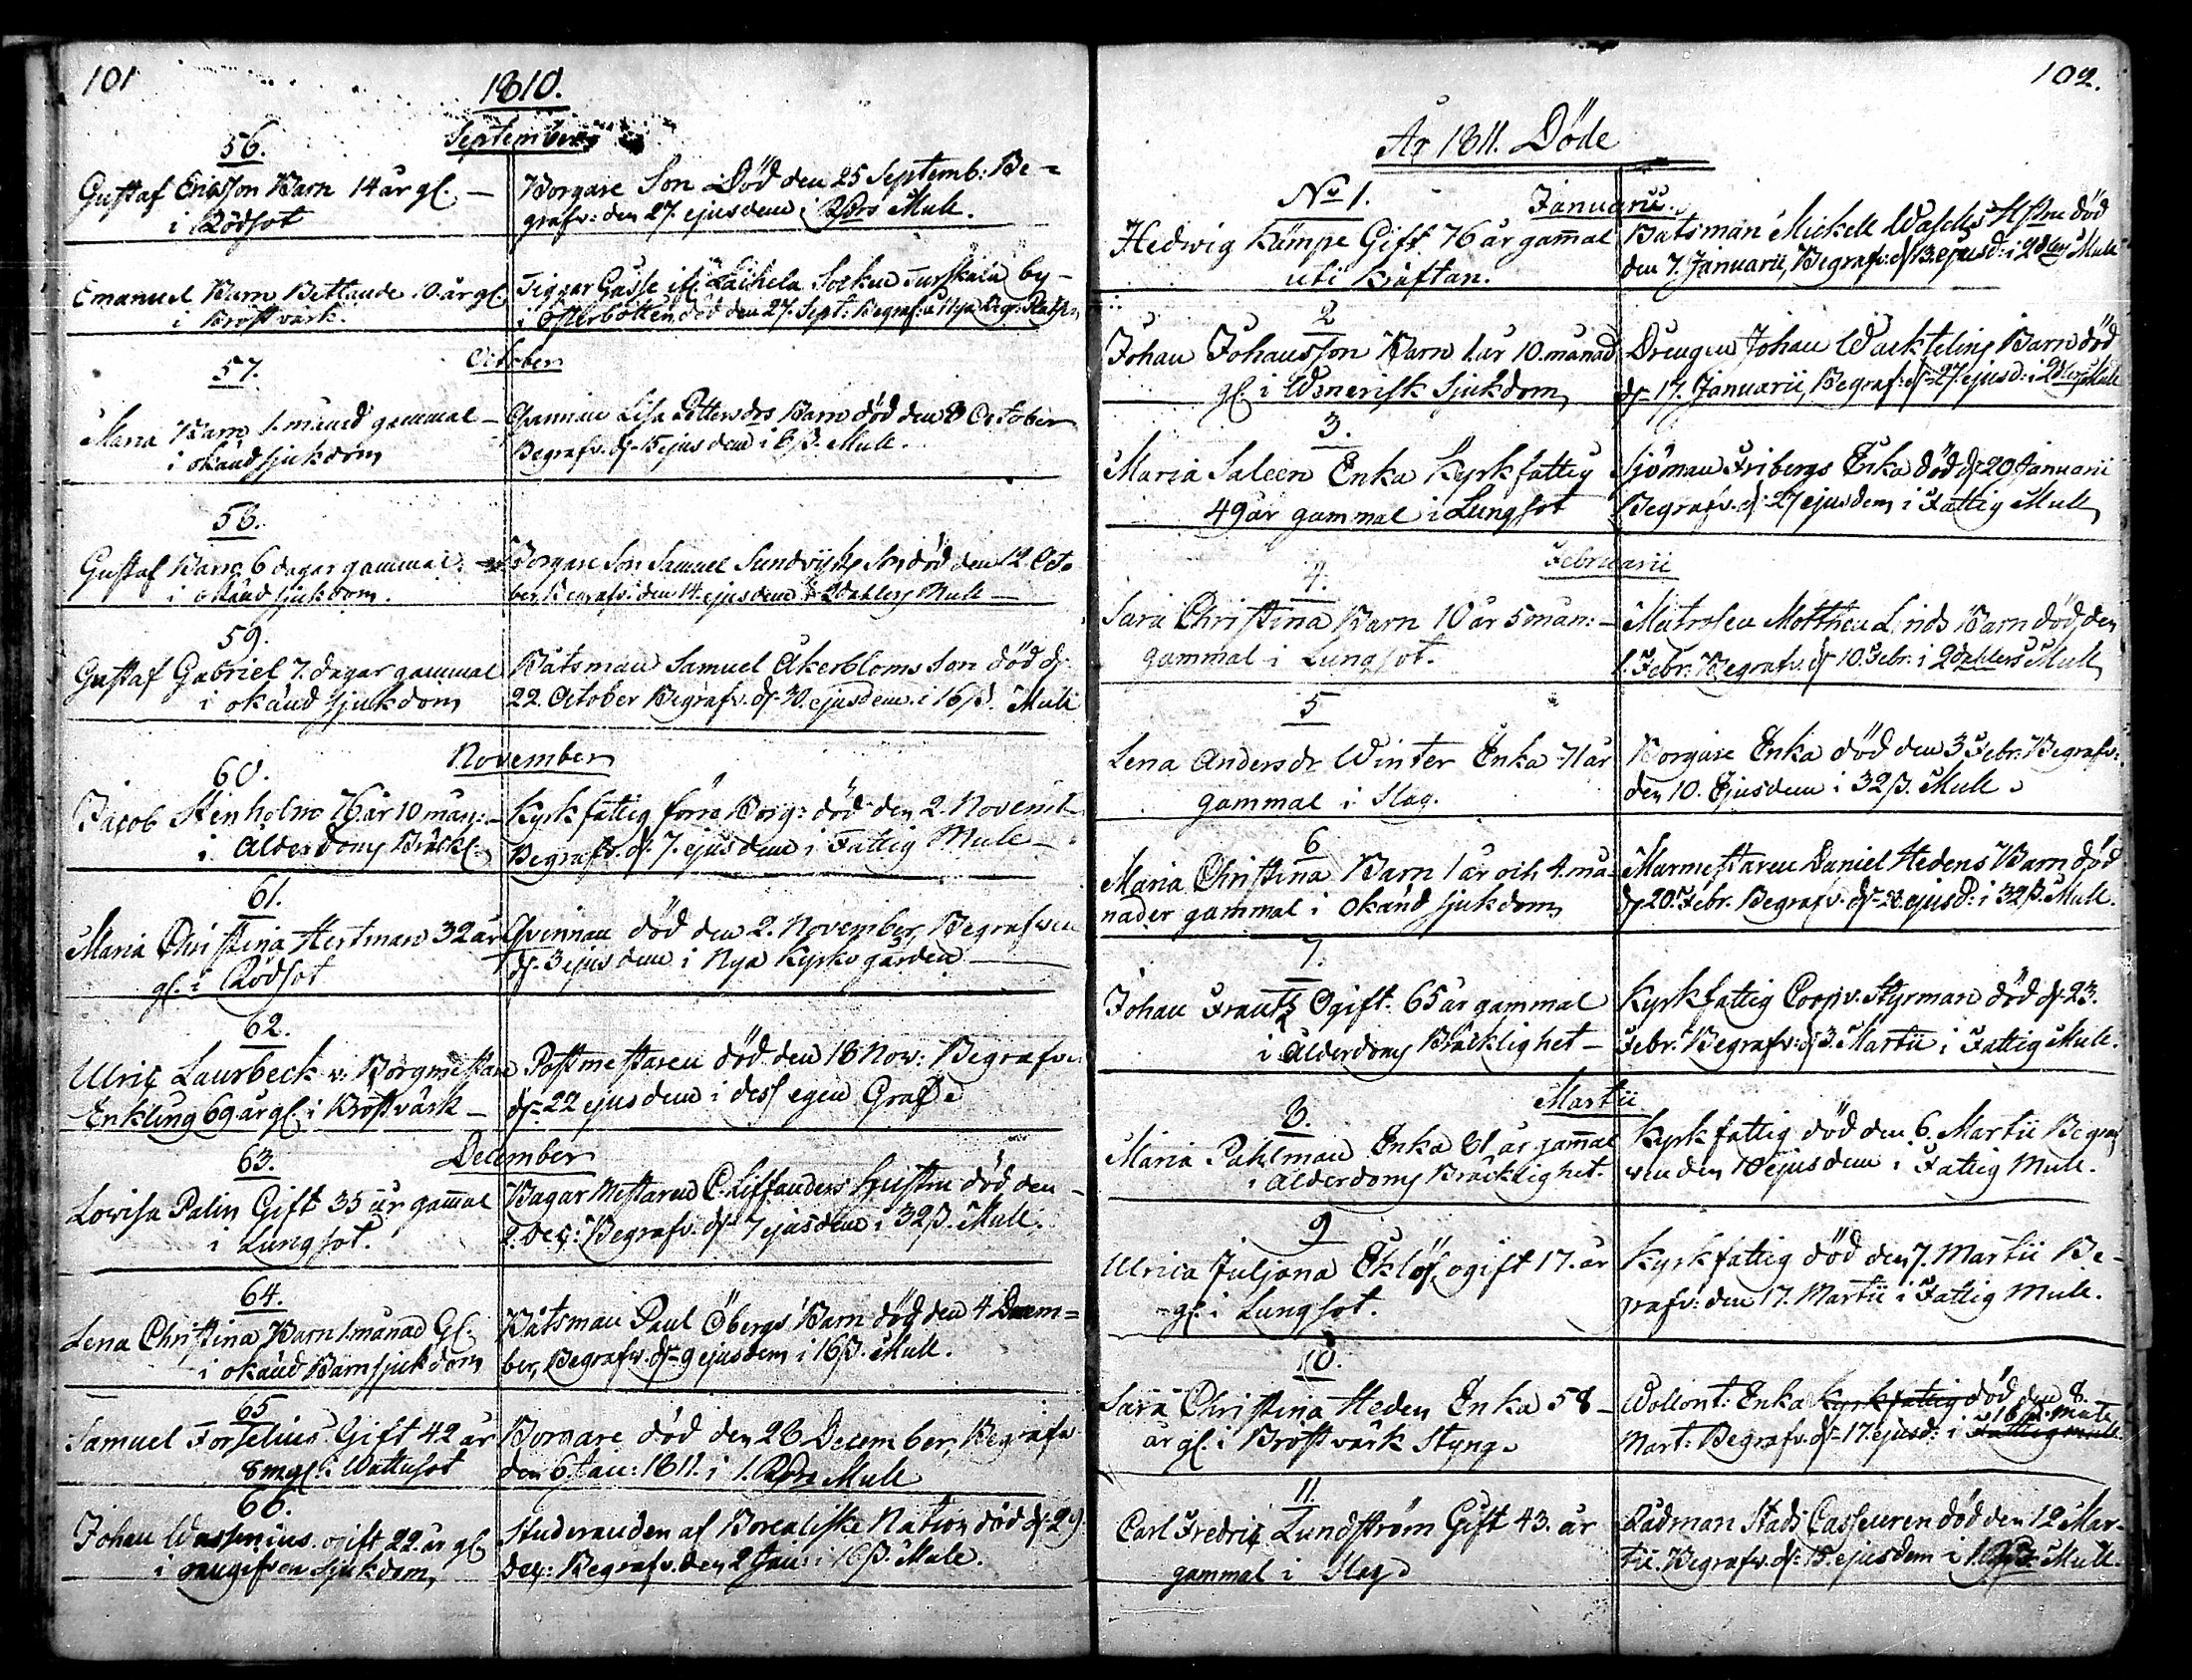 101
1810.
September
56.
Gustaf Ericsson Barn 14 år gl. —
i Rödsot
Borgare Son Död den 25 Septemb: Be-
grafv: den 27. ejusdem i Rdrs Mull.
Emanuel Barn Bettlande 10. år gl.
i Bröstvärk.
Tiggar Gåsse ifr. Laihela Socken Jurfkala by-
i Österbotten död den 27. Sept: Begraf: å Nya
October
57.
Maria Barn 1. månad gammal —
i okänd sjukdom
Qvinnan Lisa Pettersdrs Barn död den 8 October
Begrafv. d. 15 ejusdem i 8 ß. Mull.
58.
Gustaf Barn 6 dagar gammal. —
i okänd sjukdom.
Borgare Son Samuel Sundvijks Son död den 12. Octo
ber Begrafv: den 14. ejusdem i 2 Dahlers Mull —
59.
Gustaf Gabriel 7. dagar gammal
i okänd sjukdom
Båtsman Samuel Åkerbloms Son död d.
22. October Begrafv. d. 30. ejusdem. i 16 ß. Mull
November
60.
Jacob Stenholm 76. år 10 mån: —
i Ålderdoms Bräckl.
Kyrkfattig förra Borg: död den 2. Novemb
Begrafv. d. 7. ejusdem i Fattig Mull —
61.
Maria Christina Hertman 32 år
gl. i Rödsot
Qvinnan död den 2. November, Begrafven
d. 3 ejusdem i Nya Kyrko gården —
62.
Ulric Laurbeck v. Borgmestare
Enkling 69 år gl. i Bröstvärk —
Postmestaren död den 18 Nov: Begrafven
d. 22 ejusdem i dess egen Graf.
December
63.
Lovisa Palin Gift 35 år gamal
i Lungsot.
Bagar Mestaren C. Liffanders Hustru död den —
2. Dec: Begrafv. d. 7 ejusdem i 32 ß. Mull.
64.
Lena Christina Barn 1. månad Gl.
i okänd Barnsjukdom
Båtsman Paul Öbergs Barn död den 4 Decem=
ber, Begrafv. d. 9 ejusdem i 16 ß. Mull.
65
Samuel Forselius Gift 42 år
8 m gl. i Wattusot
Borgare död den 26 December, Begrafv
den 6. Jan: 1811. i 1. Rdrs Mull
66.
Johan Wassenius. ogift 22 år gl.
i ej sjukdom,
Studeranden af Borealiske Nation död d. 29.
Dec: Begrafv. den 2 Jan: i 16 ß. Mull.
102.
År 1811. Döde
Januarii.
No 1.
Hedwig Kämpe Gift 76 år gamal
uti Kräftan.
Båtsman Mickell Hstru död
den 7. Januarii, Begrafv: d. 13. ejusd: i 2 Dlrs Mull
2
Johan Johansson Barn 1. år 10. månad
gl. i Wenerisk Sjukdom,
Drengen Johan Wacktelins Barn död
d. 17. Januarii, Begraf: d. 27. ejusd: i 2 Dlers Mull
3.
Maria Saleen Enka Kyrkfattig
49 år gammal i Lungsot
Sjöman Fribergs Enka död d. 20 Januarii
Begrafv. d. 27 ejusdem i Fattig Mull,
Februarii
4.
Sara Christina Barn 10 år 5 mån: —
gammal i Lungsot.
Matrosen Mattheu Linds Barn död, den
1. Febr: Begrafv. d. 10. Febr: i 2 Dahlers Mull
5
Lena Andersdr Winter Enka 71 år
gammal i Slag.
Borgare Enka död den 3 Febr: Begrafv:
den 10. Ejusdem i 32 ß. Mull.
6
Maria Christina Barn 1 år och 4. må-
nader gammal i okänd sjukdom,
Murmestaren Daniel Hedens Barn död
d. 20. Febr. Begrafv. d. 28. ejusd: i 32 ß. Mull.
7.
Johan Frantz Ogift. 65 år gammal
i Ålderdoms Bräcklighet —
Kyrkfattig Coopv. Styrman död d. 23.
Febr. Begrafv: d. 3. Martii i Fattig Mull.
Martii
8.
Maria Pahlman Enka 81 år gamal
i Ålderdoms Bräcklighet.
Kyrkfattig död den 6. Martii Begraf
ven den 10 ejusdem i Fattig Mull.
9
Ulrica Juljana Eklöf, ogift 17. år
gl. i Lungsot.
Kyrkfattig död den 7. Martii Be-
grafv: den 17. Martii i Fattig Mull.
10.
Sara Christina Heden Enka 58 —
år gl. i Bröstvärk Styng.
Wollont: Enka Kyrkfattig död den 8.
16 ß. Mull
Mart: Begrafv. d. 17. ejusd: i Fattig Mull.
11.
Carl Fredric Lundström Gift 43. år
gammal i Slag
Rådman Stads Casseuren död den 12 Mar-
tii. Begrafv. d: 18. ejusdem i 1. Rdr. Mull.